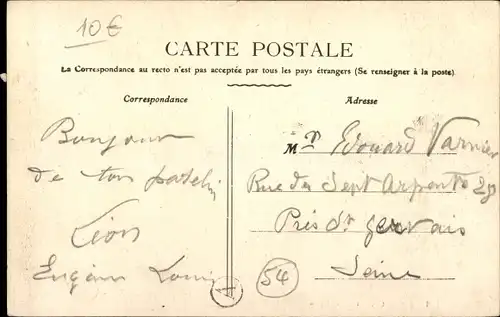 10€
CARTE POSTALE
La Correspondance au recto n'est pas acceptée par tous les pays étrangers (Se renseigner à la poste)
Correspondance
Adresse
Bonjour
de ton patelin
Léon
Eugène Louis
Mr Edouard Varnier
Rue des Sept Arpents 29
Près St gervais
Seine
54